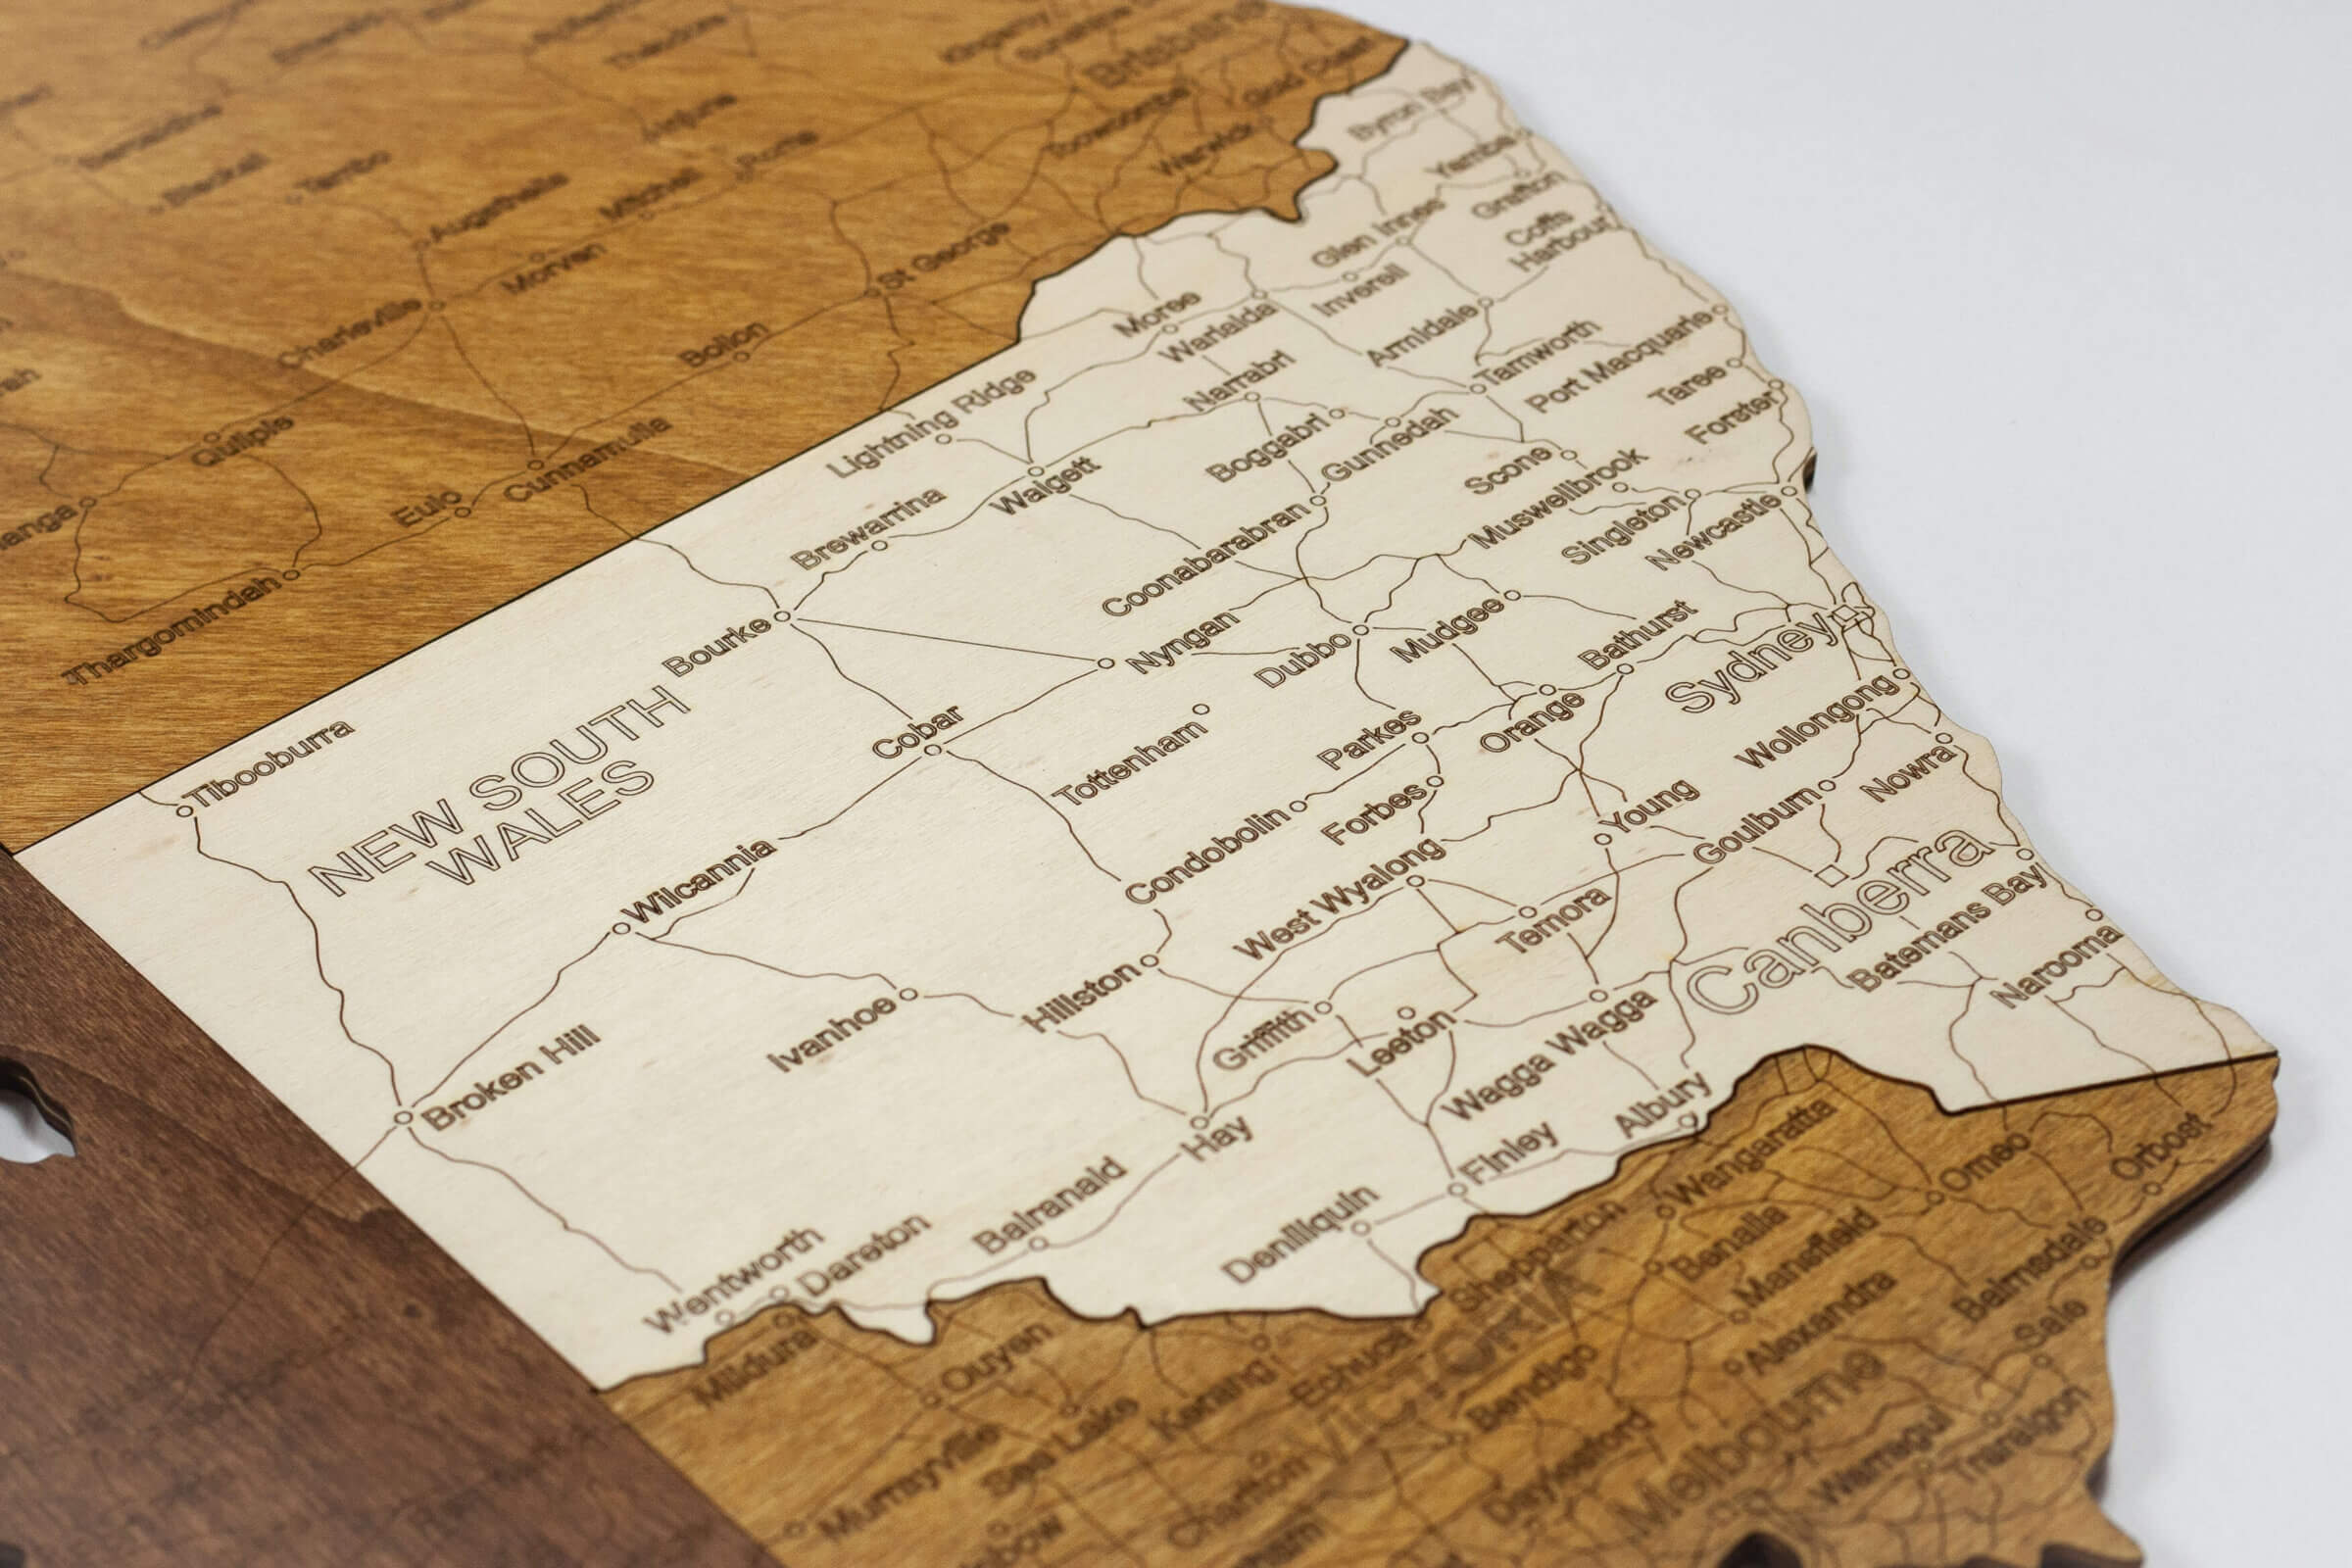 Brisbane
Gold Coast
Toowoomba
Warwick
Injune
Roma
Mitchell
Tambo
Blackall
Barcaldine
Augathella
Morven
Charleville
St George
Bollon
Quilpie
Cunnamulla
Eulo
Thargomindah
Byron Bay
Yamba
Grafton
Glen Innes
Coffs
Harbour
Inverell
Moree
Warialda
Armidale
Tamworth
Port Macquarie
Taree
Forster
Narrabri
Lightning Ridge
Boggabri
Gunnedah
Walgett
Scone
Muswellbrook
Singleton
Newcastle
Brewarrina
Coonabarabran
Bourke
Nyngan
Dubbo
Mudgee
Bathurst
Sydney
Wollongong
Nowra
Tibooburra
NEW SOUTH
WALES
Cobar
Tottenham
Parkes
Orange
Forbes
Condobolin
Young
Goulburn
Canberra
Batemans Bay
Narooma
Wilcannia
West Wyalong
Temora
Hillston
Ivanhoe
Griffith
Leeton
Wagga Wagga
Broken Hill
Hay
Finley
Albury
Balranald
Deniliquin
Wentworth
Dareton
Wangaratta
Omeo
Orbost
Shepparton
Benalla
Mansfield
Bairnsdale
Alexandra
Sale
VICTORIA
Mildura
Ouyen
Kerang
Echuca
Bendigo
Melbourne
Sea Lake
Murrayville
Charlton
Daylesford
Warragul
Traralgon